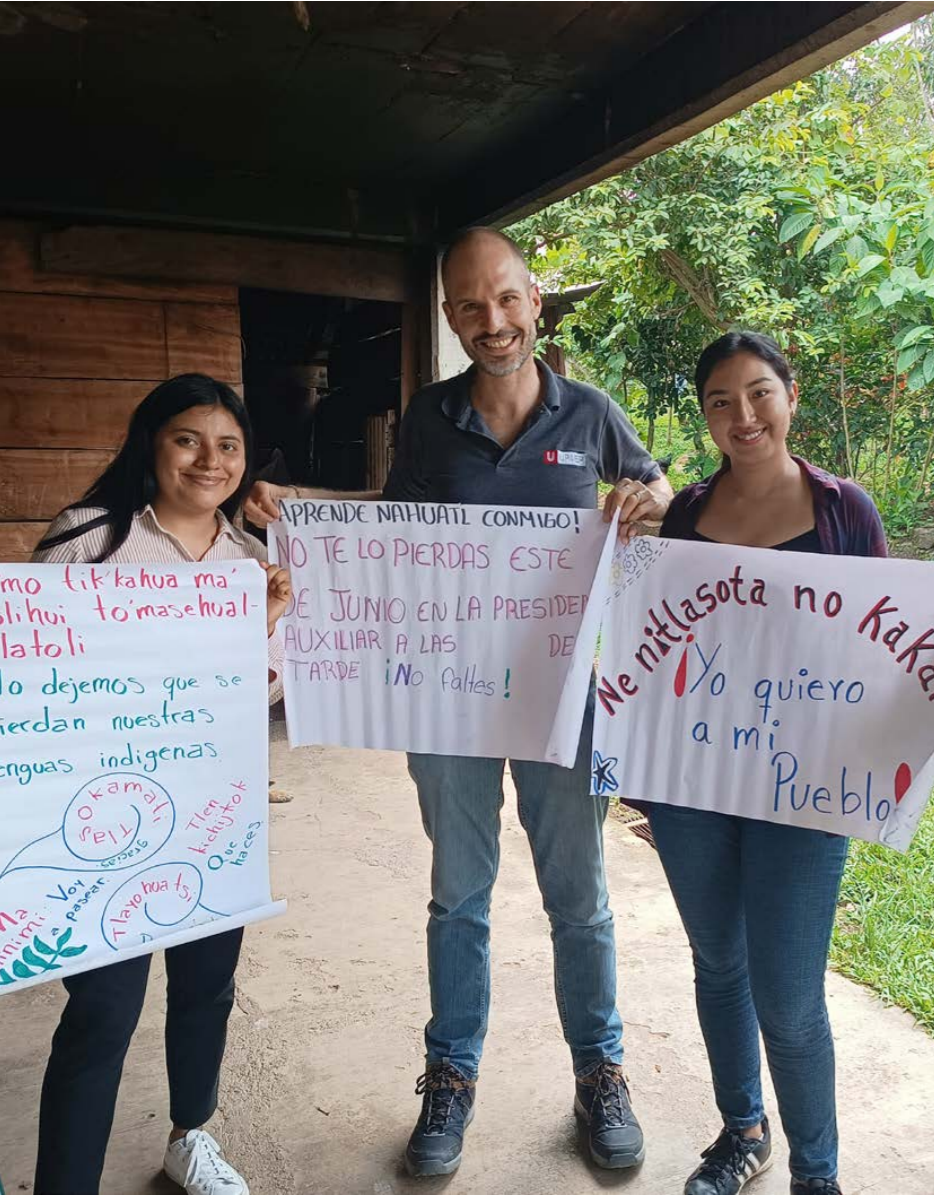 mo tik'kahua ma'
slihui to'masehual-
latoli
lo dejemos que se
ierdan nuestras
enguas indigenas
Tlas
okamati
gracias
Tlen
kichijtok
Que
haces
Voy
a pasear
Ma
Tlayohuats
APRENDE NAHUATL CONMIGO!
NO TE LO PIERDAS ESTE
DE JUNIO EN LA PRESIDEN
AUXILIAR A LAS DE
TARDE ¡No faltes!
U
Ne nitlasota no Kaka
¡Yo quiero
a mi
Pueblo!